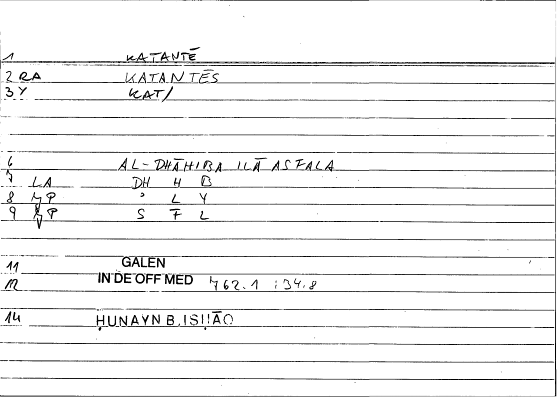 1 KATANTĒ
2 RA KATANTĒS
3 Y KAT/
6 AL-DHĀHIBA ILĀ ASFALA
7 LA DH H B
8 P ʾ L Y
9 P S F L
11 GALEN
12 IN DE OFF MED 762.1 :34.8
14 ḤUNAYN B. ISḤĀQ